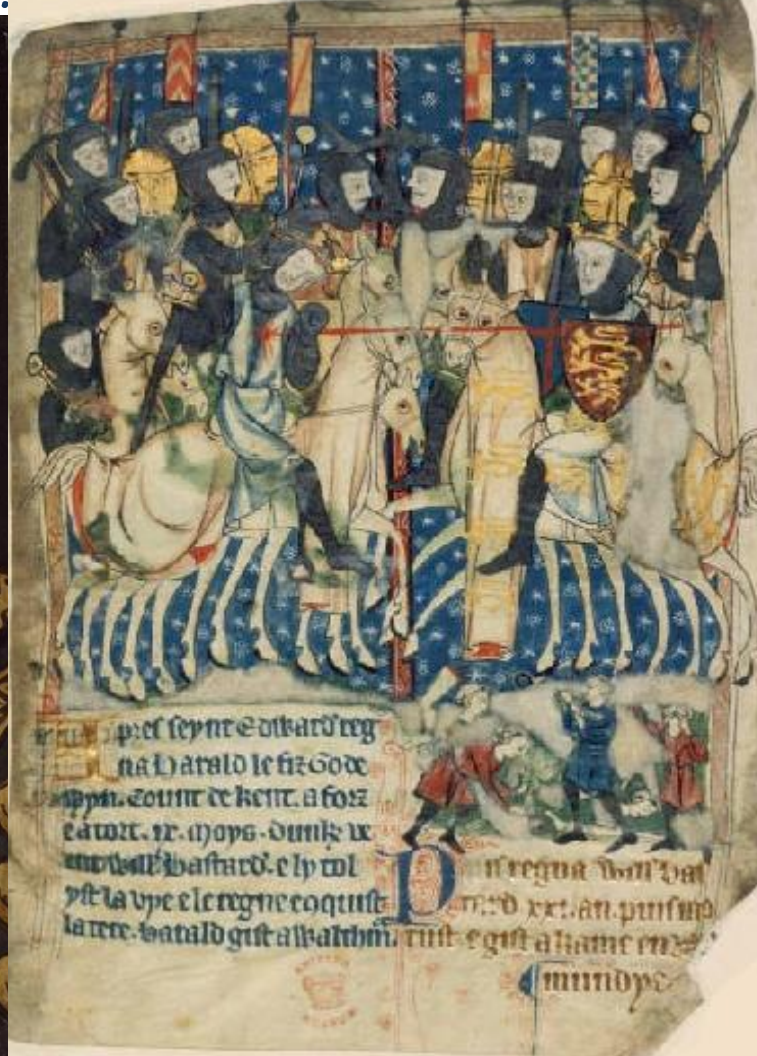 Apres seynt Edward reg
na Harald le fiz Gode
wyn. Count de kent. a forz
e a tort. ix. moys. dunk ve
int will' bastard. e ly tol
yst la vye e le regne coquist
la tere. Harald gist a Walthm.
regna Will' bas
tard xxi. an. puis mo
rust. e gist a kame en
mundye.